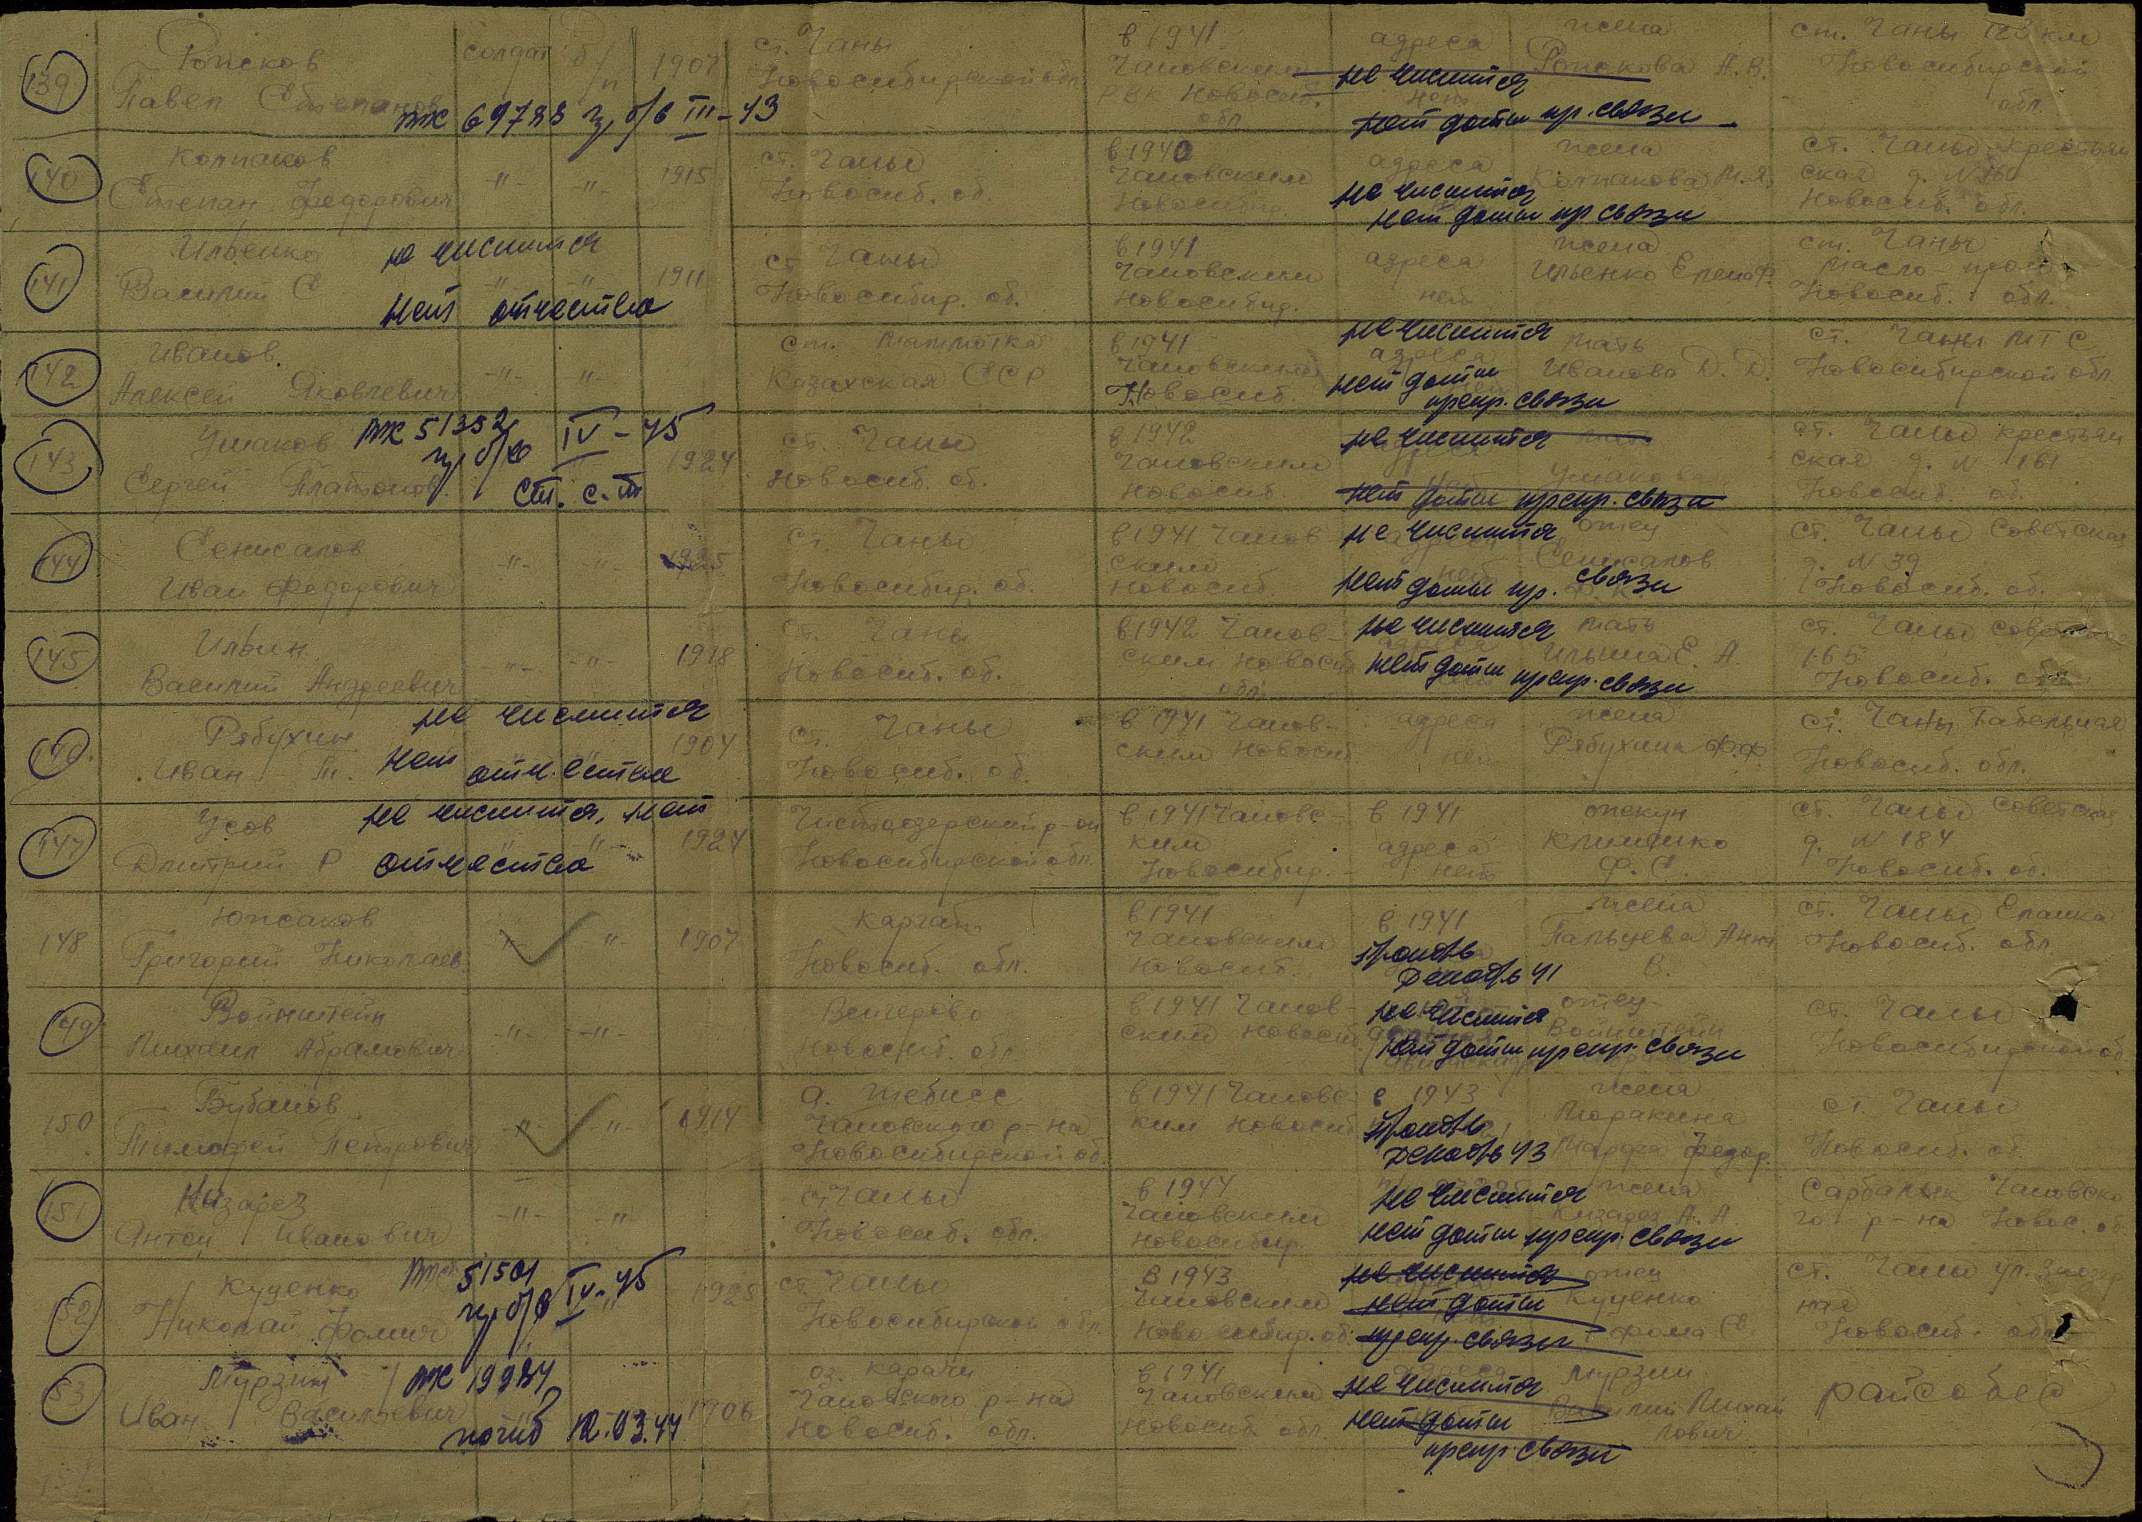 139
Павел Степанов
солдат б/п 1907
вк 69783 пр б/в III-43
ст. Чаны
Новосибирской обл.
в 1941
Чановским
рвк Новосиб.
обл
адреса
не числится
нет
нет даты пр. связи
жена
А.В.
ст. Чаны
Новосибирской
обл
140
Колпаков
Степан Федорович
-"- -"- 1915
ст. Чаны
Новосиб. об.
в 1940
Чановским
Новосибир.
адреса
не числится
нет даты пр связи
жена
Колпакова М.Я.
ст. Чаны Крестьян
ская д. N
Новосиб. обл.
141
Ильенко
Василий С
не числится
" " 1911
нет отчества
ст Чаны
Новосибир. об.
в 1941
Чановским
Новосибир.
адреса
нет
жена
Ильенко Елена Ф.
ст. Чаны
Масло пром
Новосиб. обл.
142
Иванов
Алексей Яковлевич
-"- -"-
ст.
Казахская ССР
в 1941
Чановским
Новосиб.
не числится
адреса
нет даты
прекр. связи
мать
Иванова Д. Д.
ст. Чаны МТС
Новосибирской обл
143
Ушаков
Сергей Платонов.
вк 51352
пр б/в IV-45
1924
ст. с-т
ст. Чаны
Новосиб. об.
в 1942
Чановским
Новосиб
не числится
адреса
нет даты прекр. связи
мать
Ушакова
ст. Чаны Крестьян
ская д. N 161
Новосиб. об.
144
Иван Федорович
-"- -"- 1925
ст Чаны
Новосибир. об.
в 1941 Чанов
ским
Новосиб.
не числится
нет даты пр. связи
отец
ст. Чаны Советская
д. N 39
Новосиб. об.
145
Ильин
Василий Андреевич
-"- -"- 1918
ст. Чаны
Новосиб. об.
в 1942 Чанов-
ским Новосиб
обл.
не числится
нет даты прекр. связи
мать
Ильина Е. А
ст. Чаны Советская
165
Новосиб. обл
146.
Рябухин
Иван Т.
не числится
нет отчества
1904
ст. Чаны
Новосиб. об.
в 1941 Чанов-
ским Новосиб
адреса
нет
жена
Рябухина Ф.Ф.
ст. Чаны
Новосиб. обл.
147
Усов
Дмитрий Р
не числится, нет
отчества
" 1924
Чистоозерский р-он
Новосибирской обл.
в 1941 Чановс-
ким
Новосибир.
в 1941
адреса
нет
опекун
Клименко
Ф. С.
ст. Чаны Советская
д. N 184
Новосиб. об.
148
Юнсаков
Григорий Николаев.
-"- -"- 1907
Каргат
Новосиб. обл.
в 1941
Чановским
Новосиб.
в 1941
пропал
декабрь 41
жена
Пальцева Анна
В.
ст. Чаны
Новосиб. обл
149
Войнштейн
Михаил Абрамович
-"- -"-
Венгерово
Новосиб. обл
в 1941 Чанов-
ским Новосиб
не числится
нет даты прекр. связи
отец
Войнштейн
ст. Чаны
Новосибирской об
150
Бубанов
Тимофей Петрович
-"- -"- 1914
д. Тебисс
Чановского р-на
Новосибирской об.
в 1941 Чановс-
ким Новосиб
в 1943
пропал
декабрь 43
жена
Моракина
Марфа Федор.
ст. Чаны
Новосиб. об.
151
Кизарез
Антон Иванович
-"- -"-
ст. Чаны
Новосиб. обл.
в 1944
Чановским
Новосибир.
не числится
нет даты прекр. связи
жена
Кизарез А. А.
Сарбалык Чановско
го р-на Новос. об
152
Куценко
Николай Фомич
вк 51501
пр б/в IV-45
ст Чаны
Новосибирской обл.
в 1943
Чановским
Новосибир. об.
не числится
нет даты
прекр. связи
отец
Куценко
Фома Е
ст. Чаны
Новосиб. обл
153
Мурзин
Иван Васильевич
вк 19984
погиб 12.03.44
1906
оз. Карачи
Чановского р-на
Новосиб. обл.
в 1941
Чановским
Новосиб. обл
не числится
нет даты
прекр. связи
Мурзин
Василий Михай
лович
райсобес